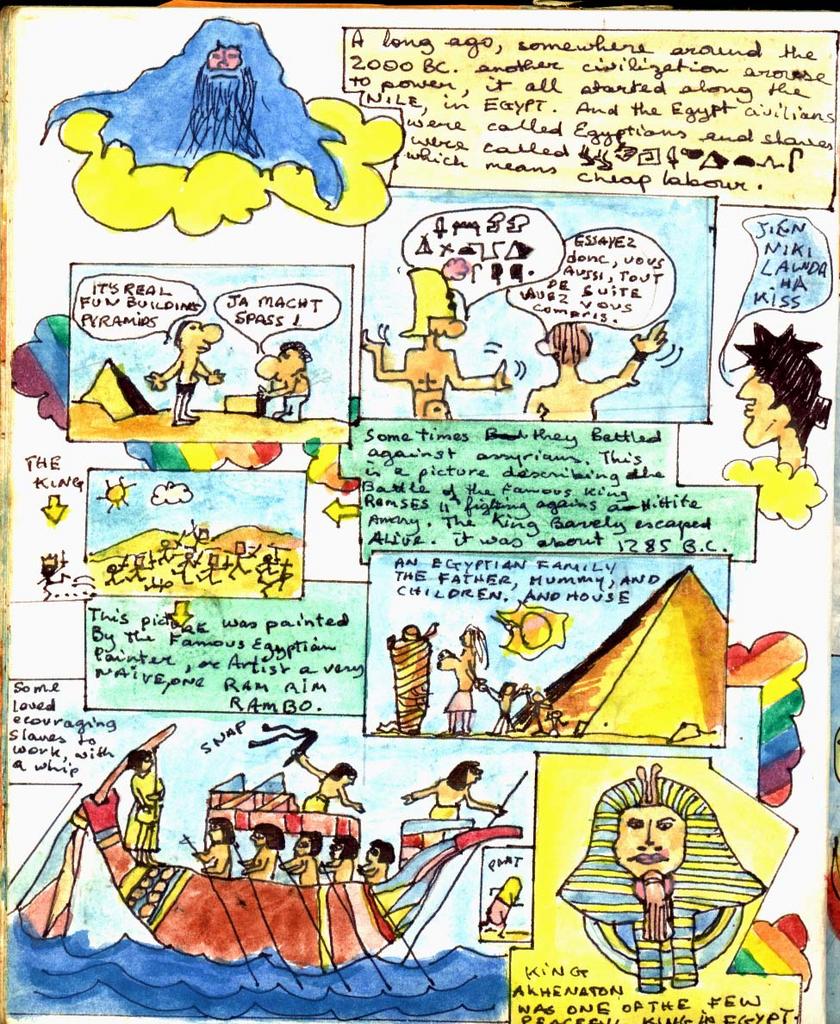 A long ago, somewhere around the
2000 BC. another civilization arouse
to power, it all started along the
NILE, in EGYPT. And the Egypt civilians
were called Egyptians and slaves
were called
which means cheap labour.
IT'S REAL
FUN BUILDING
PYRAMIDS
JA MACHT
SPASS!
ESSAYEZ
donc, vous
AUSSI, TOUT
DE SUITE
VOUS
COMPRIS.
JIEN
NIKI
LAWDA
HA
KISS
Some times they Battled
against assyrians. This
is a picture describing the
Battle of the Famous King
RAMSES II fighting agains a Hittite
Amary. The King Barely escaped
ALIVE. it was about 1285 B.C.
THE
KING
This pictURE was painted
By the Famous Egyptian
Painter, or Artist a very
NAIVE, ONE RAM RIM
RAMBO.
AN EGYPTIAN FAMILY
THE FATHER, MUMMY, AND
CHILDREN. AND HOUSE
Some
loved
ecouraging
slaves to
work, with
a whip
SNAP
KING
AKHENATON
WAS ONE OF THE FEW
PEACEFUL KING IN EGYPT